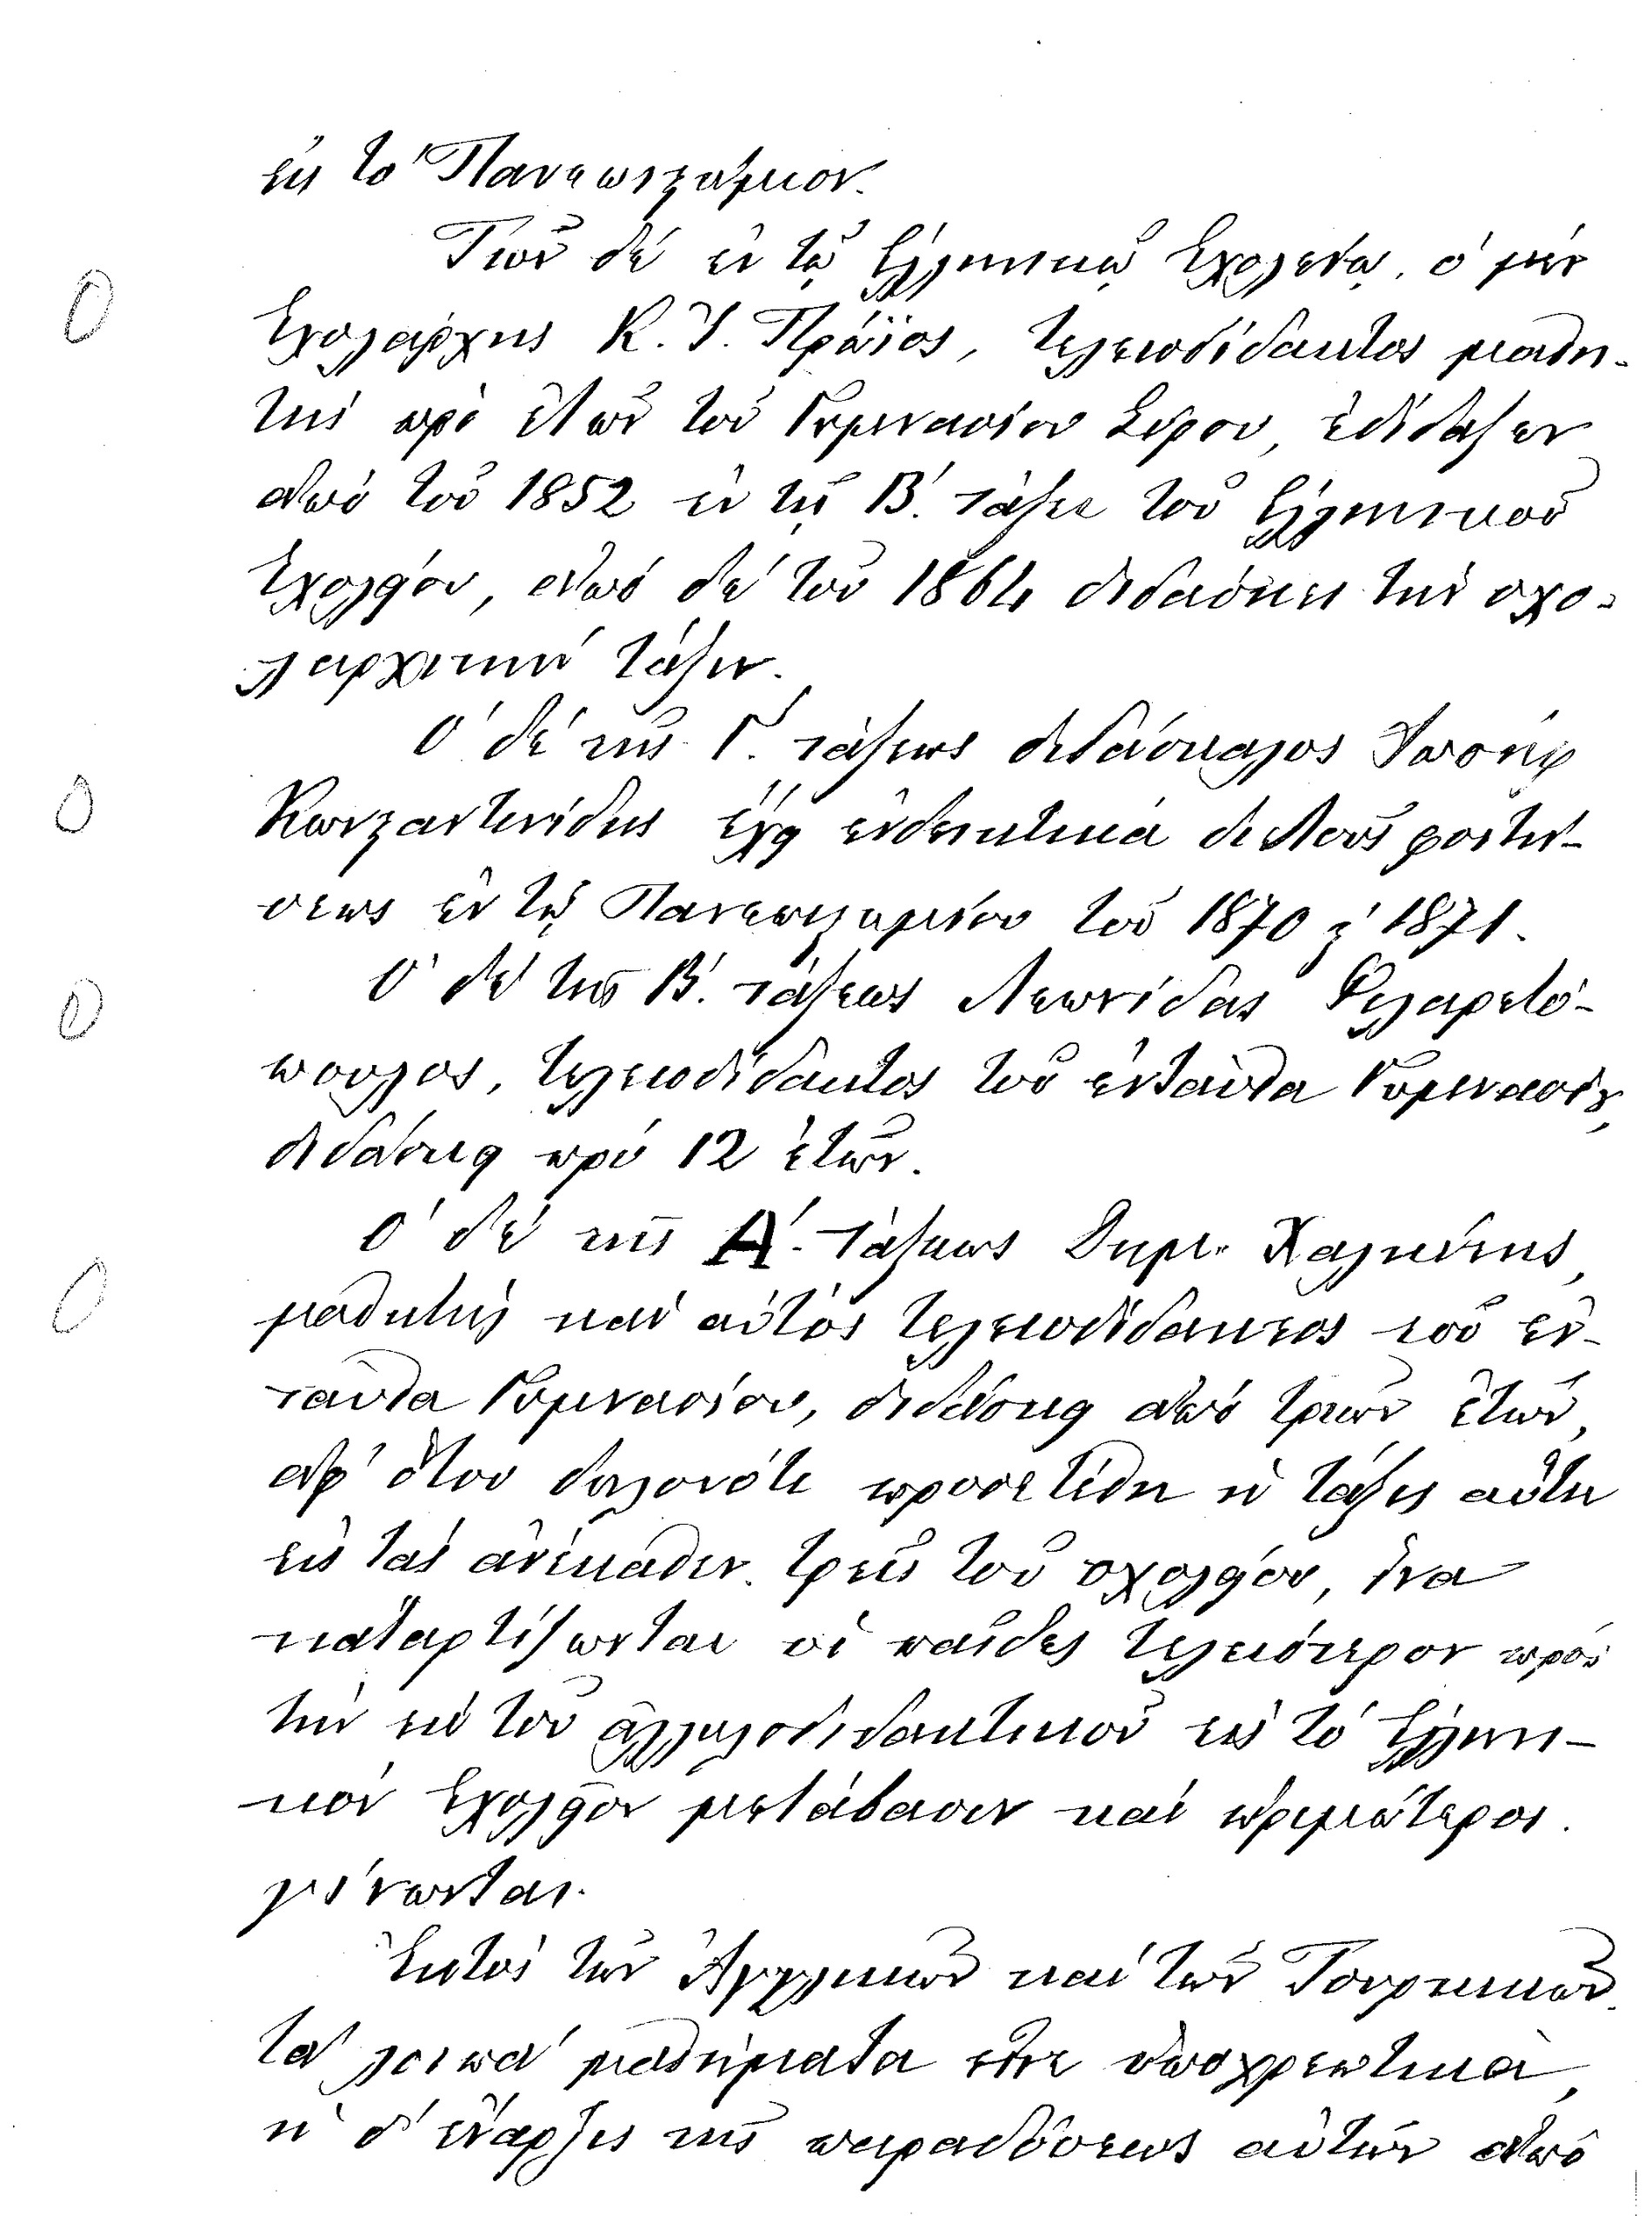 εἰς τὸ Πανεπιστήμιον.
Τῶν δὲ ἐν τῷ Ἑλληνικῷ Σχολείῳ, ὁ μὲν
Σχολάρχης Κ. Ἰ. Πράϊος, τελειοδίδακτος μαθη-
τὴς πρὸ ἐτῶν τοῦ Γυμνασίου Σύρου, ἐδίδαξεν
ἀπὸ τοῦ 1852 ἐν τῇ Β΄. τάξει τοῦ Ἑλληνικοῦ
Σχολείου, ἀπὸ δὲ τοῦ 1864 διδάσκει τὴν σχο-
λαρχικὴν τάξιν.
Ὁ δὲ τῆς Γ΄. τάξεως διδάσκαλος Ἰωσὴφ
Κωνσταντινίδης ἔχει ἐνδεικτικὰ διετοῦς φοιτή-
σεως ἐν τῷ Πανεπιστημίου τοῦ 1870 ϗ 1871.
Ὁ δὲ τῆς Β΄. τάξεως Λεωνίδας Φιλαρετό-
πουλος, τελειοδίδακτος τοῦ ἐνταῦθα Γυμνασίου,
διδάσκει πρὸ 12 ἐτῶν.
Ὁ δὲ τῆς Α΄. τάξεως Δημ. Χαλκίτης,
μαθητὴς καὶ αὐτὸς τελειοδίδακτος τοῦ ἐν-
ταῦθα Γυμνασίου, διδάσκει ἀπὸ τριῶν ἐτῶν,
ἀφ' ὅτου δηλονότι προσετέθη ἡ τάξις αὕτη
εἰς τὰς ἀνέκαθεν τρεῖς τοῦ σχολείου, ἵνα
καταρτίζωνται οἱ παῖδες τελειότερον πρὸς
τὴν ἐκ τοῦ ἀλληλοδιδακτικοῦ εἰς τὸ Ἑλληνι-
κὸν Σχολεῖον μετάβασιν καὶ ὡριμώτεροι
γίνωνται.
Ἐκτὸς τῶν Ἀγγλικῶν καὶ τῶν Τουρκικῶν
τὰ λοιπὰ μαθήματα εἶνε ὑποχρεωτικὰ,
ἡ δ' ἔναρξις τῆς παραδόσεως αὐτῶν ἀπὸ